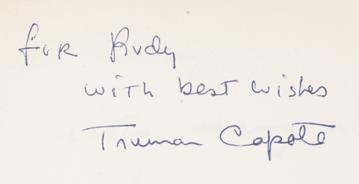 for Rudy
with best wishes
Truman Capote